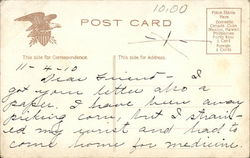 10.00
POST CARD
Place Stamp Here
Domestic
One Cent
Foreign
2 Cents
This side for Correspondence.
This side for Address.
11-4-10
Dear Friend - I
got your letter also a
paper. I have been away
picking corn, but I strain-
ed my wrist and had to
come home for medicine